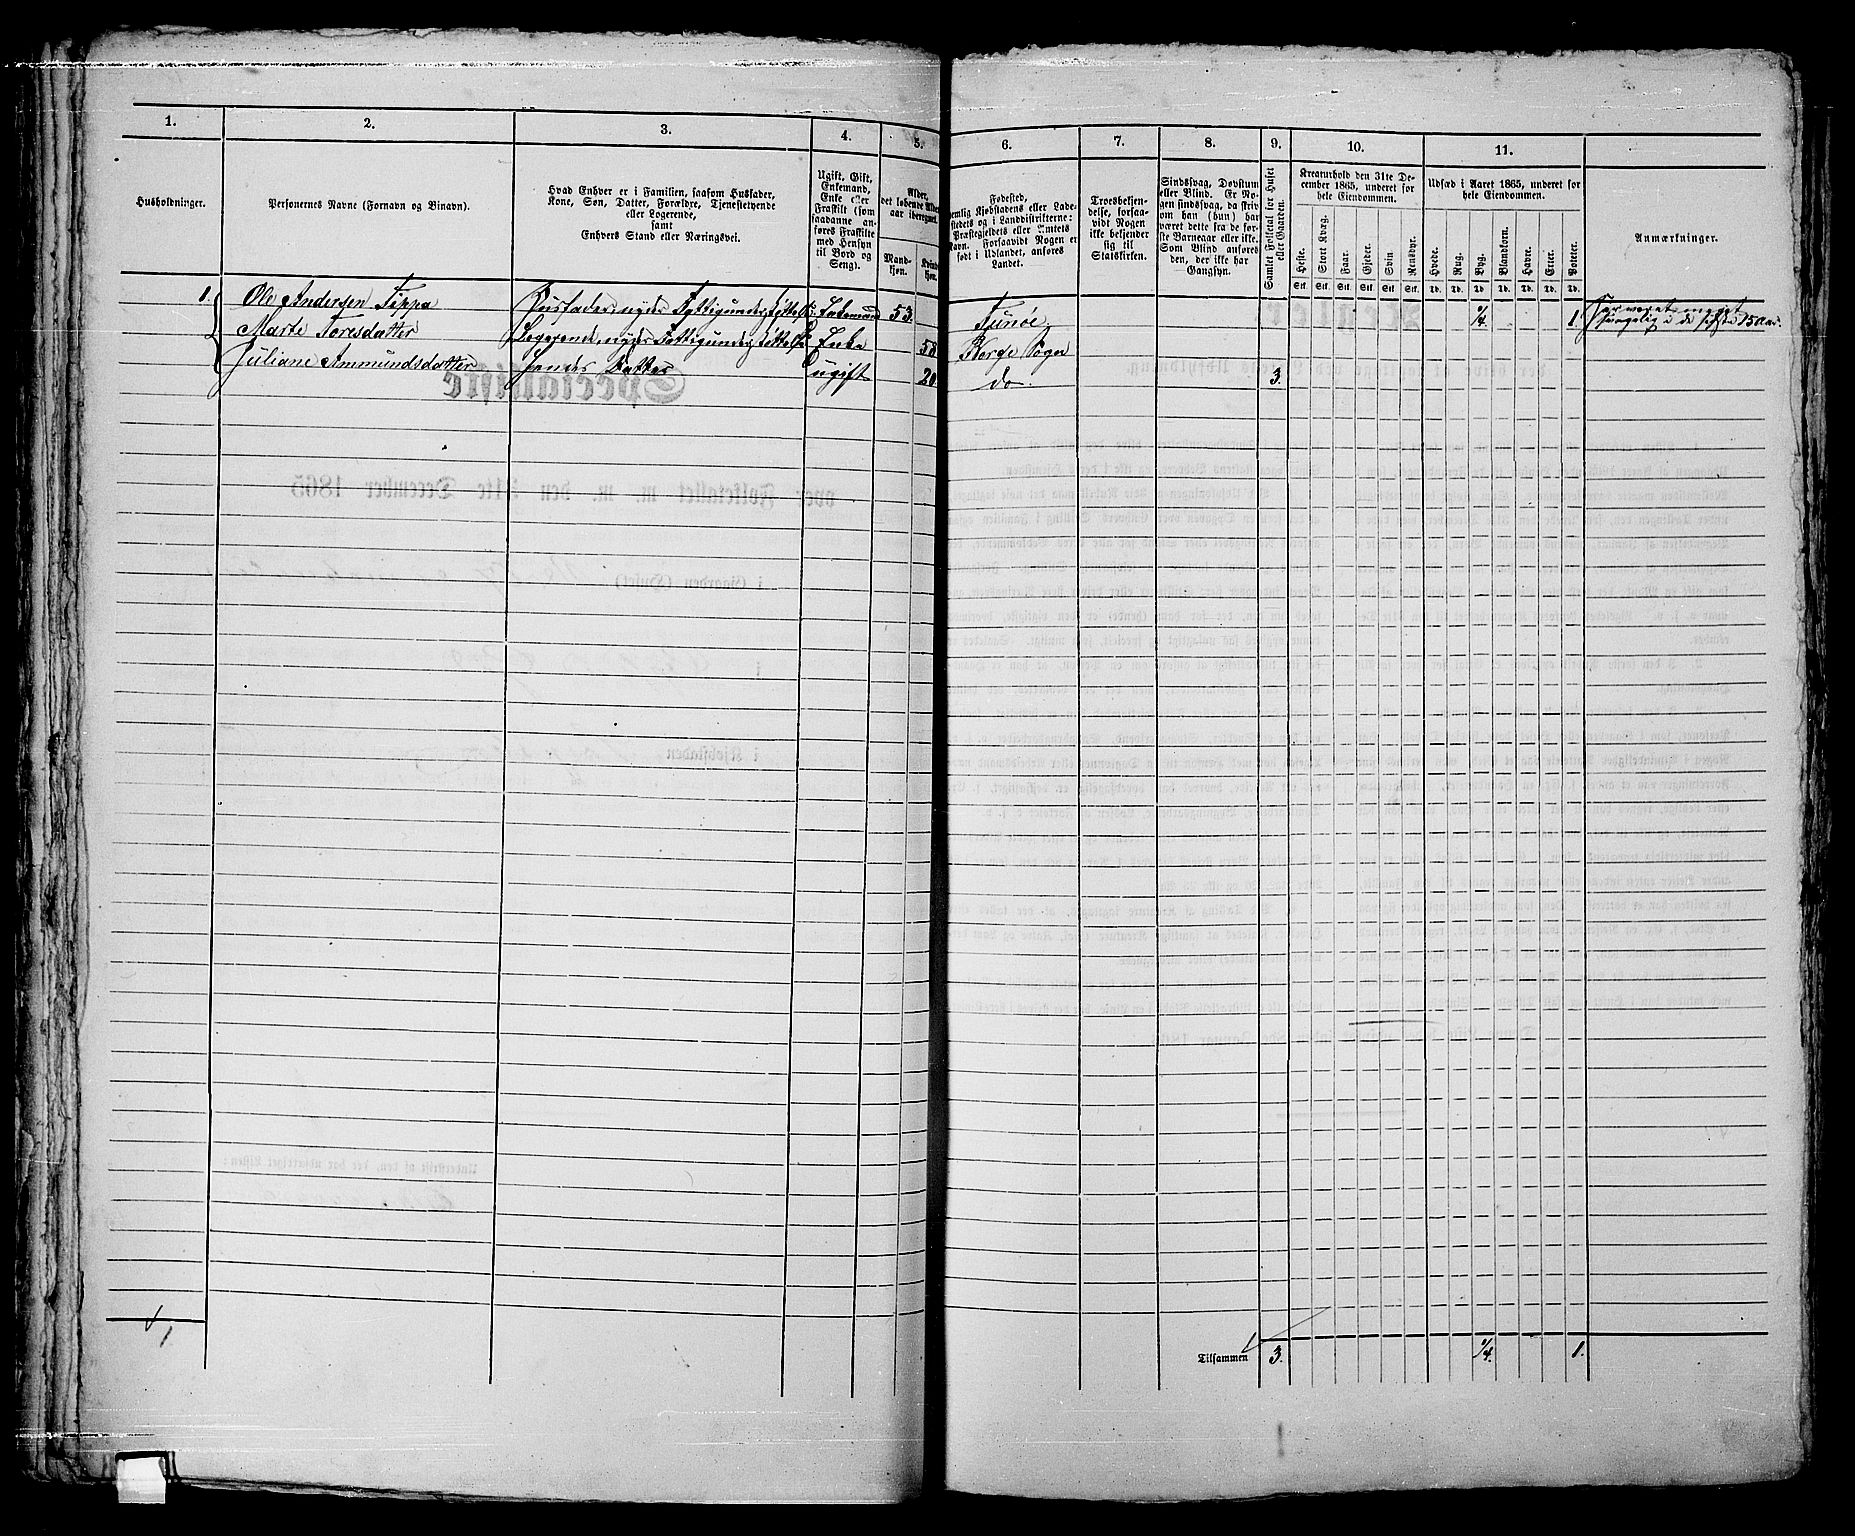 1.
2.
3.
4.
5.
6.
7.
8.
9.
10.
11.
Husholdninger.
Personernes Navne (Fornavn og Binavn).
Hvad Enhver er i Familien, saasom Husfader,
Kone, Søn, Datter, Forældre, Tjenestetyende
eller Logerende,
samt
Enhvers Stand eller Næringsvei.
Ugift, Gift,
Enkemand,
Enke eller
Fraskilt (som
saadanne an-
føres Fraskilte
med Hensyn
til Bord og
Seng).
Alder,
det løbende Alders-
aar iberegnet.
Mand-
kjøn.
Kvinde-
kjøn.
Fødested,
nemlig Kjøbstadens eller Lade-
stedets og i Landdistrikterne:
Præstegjeldets eller Amtets
Navn. Forsaavidt Nogen er
født i Udlandet, anføres
Landet.
Troesbekjen-
delse, forsaa-
vidt Nogen
ikke bekjender
sig til
Statskirken.
Sindssvag, Døvstum
eller Blind. Er No-
gen sindssvag, da skriv
om han (hun) har
været dette fra de før-
ste Barneaar eller ikke.
Som Blind anføres
den, der ikke har
Gangsyn.
Samlet Folketal for Huset
eller Gaarden.
Kreaturhold den 31te De-
cember 1865, underet for
hele Eiendommen.
Heste.
Stort Kvæg.
Faar.
Gjeder.
Svin
Rensdyr.
Stk.
Stk.
Stk.
Stk.
Stk.
Stk.
Udsæd i Aaret 1865, underet for
hele Eiendommen.
Hvede.
Rug.
Byg.
Blandkorn.
Havre.
Erter.
Poteter.
Td.
Td.
Td.
Td.
Td.
Td.
Td.
Anmærkninger.
1. Ole Andersen Tippa Husfader, nyder Fattigunderstøttelse Enkemand 53. 1/4 1.
Marte Toresdatter Logerende, nyder Fattigunderstøttelse Enke 58 Sogn
Juliane Ammundsdatter Hendes Datter ugift 20 do 3.
1
Tilsammen 3. 1/4. 1.